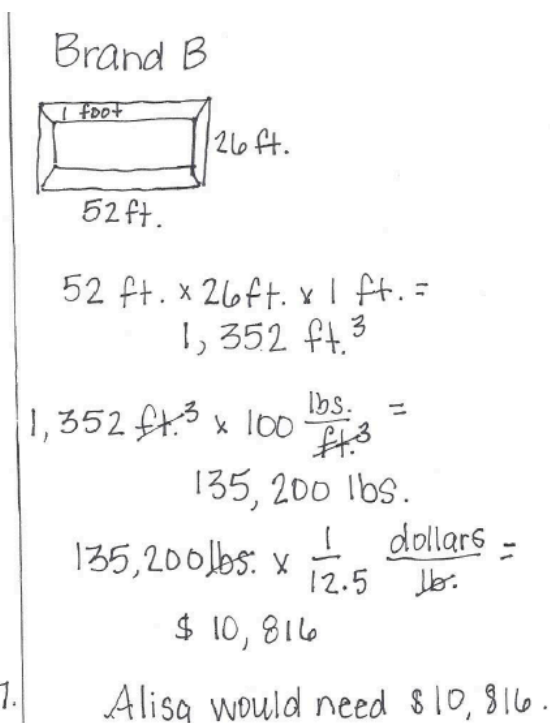 Brand B
1 foot
26 ft.
52 ft.
52 ft. x 26 ft. x 1 ft. =
1,352 ft.³
1,352 ft.³ x 100 lbs./ft.³ =
135,200 lbs.
135,200 lbs. x 1/12.5 dollars/lb. =
$ 10,816
7. Alisa would need $10,816.